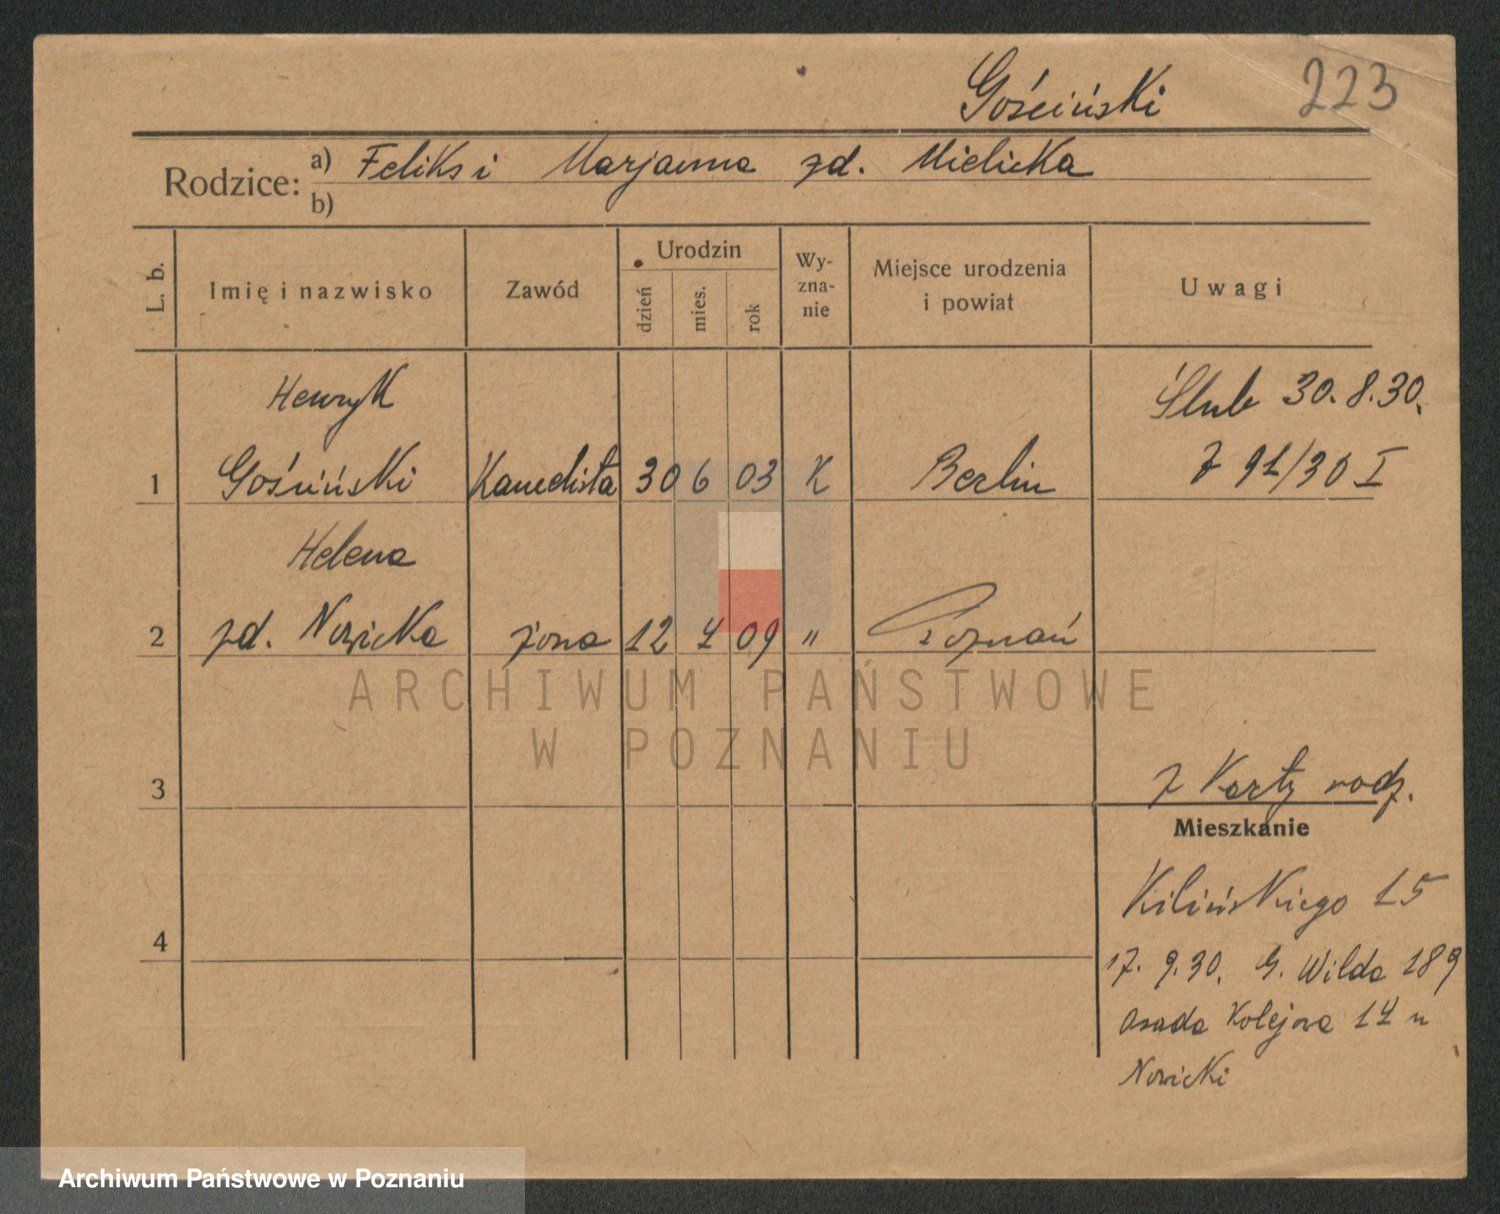 Gościński 223
Rodzice: a) Feliks i Marjanna zd. Mielicka
b)
L. b. Imię i nazwisko Zawód Urodzin dzień mies. rok Wyznanie Miejsce urodzenia i powiat Uwagi
Henryk Ślub 30.8.30.
1 Gościński 30 6 03 K Berlin 91/30 I
Helena
2 zd. Nowicka żona 12 4 09 " Poznań
ARCHIWUM PAŃSTWOWE
W POZNANIU
3 z Karty rodz.
Mieszkanie
Kilińskiego 15
4
17. 9. 30. G. Wilda 189
Osada Kolejowa 14 u
Nowicki
Archiwum Państwowe w Poznaniu